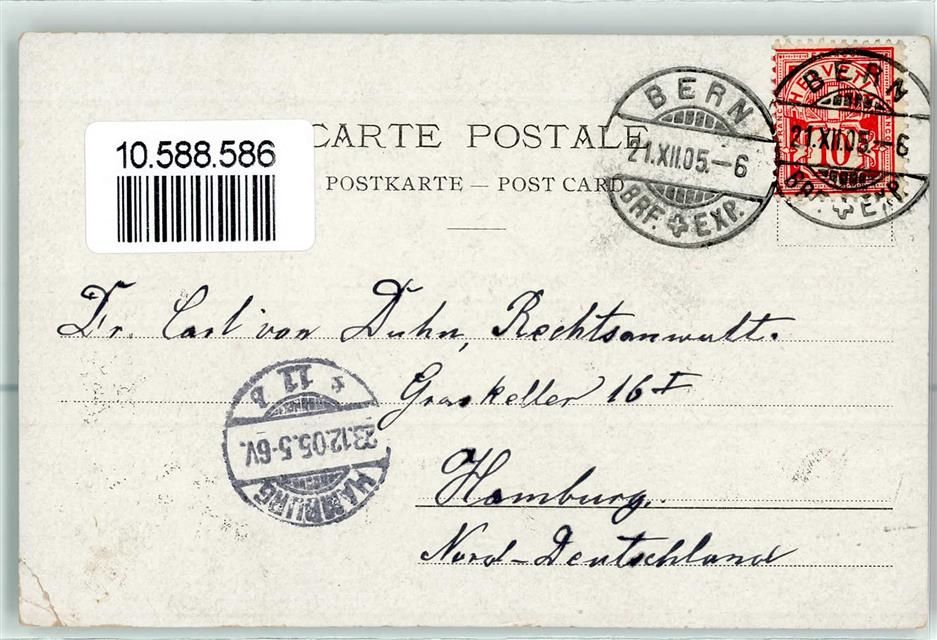 10.588.586
CARTE POSTALE
POSTKARTE — POST CARD
BERN
21.XII.05.–6
BRF. EXP.
HELVETIA
FRANCO
10
BERN
21.XII.05.–6
BRF. EXP.
Dr. Carl von Duhn, Rechtsanwalt.
Graskeller 16 I
Hamburg.
Nord-Deutschland
HAMBURG
23.12.05.5-6V.
* 11 b